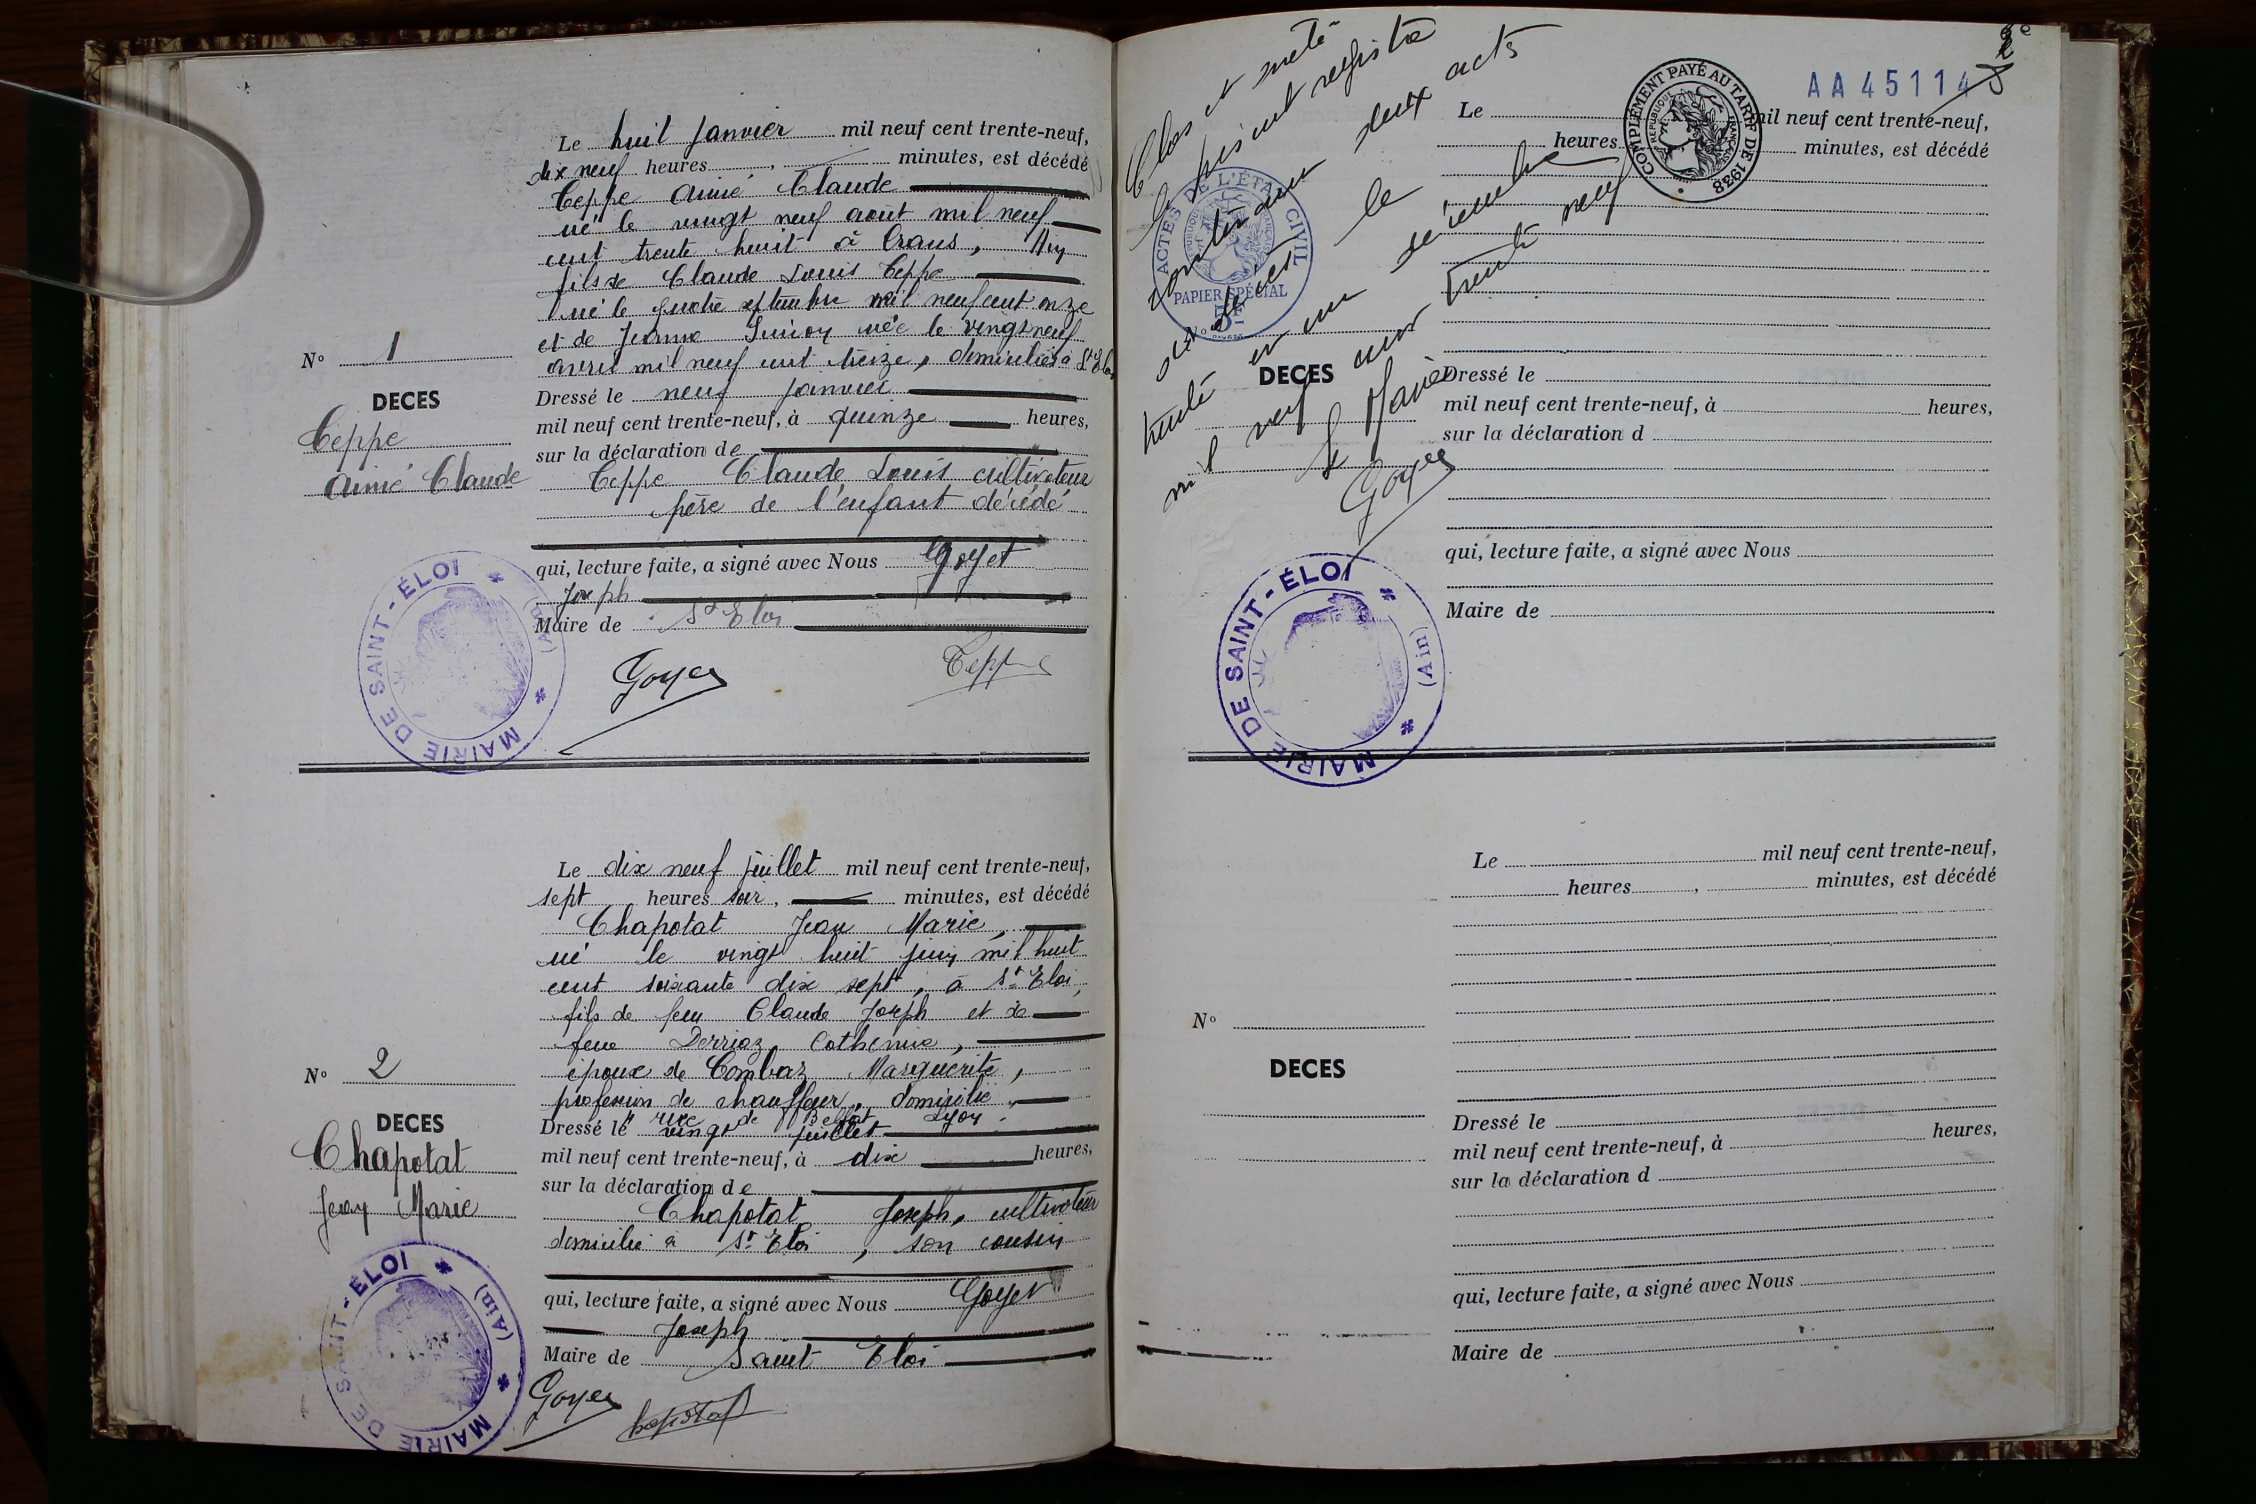 Le huit Janvier mil neuf cent trente-neuf,
dix neuf heures , minutes, est décédé
Teppe Aimé Claude
né le vingt neuf août mil neuf
cent trente huit à Crans, Ain
fils de Claude Louis Teppe
né le quatre septembre mil neuf cent onze
et de Jeanne née le vingt neuf
avril mil neuf cent treize, domiciliés à St Eloi
N° 1
DECES
Teppe
Aimé Claude
Dressé le neuf Janvier
mil neuf cent trente-neuf, à quinze heures,
sur la déclaration de
Teppe Claude Louis cultivateur
père de l'enfant décédé
qui, lecture faite, a signé avec Nous Goyet
Joseph
Maire de St Eloi
Goyet Teppe
MAIRIE DE SAINT-ÉLOI * (Ain) *
Le dix neuf juillet mil neuf cent trente-neuf,
sept heures soir , minutes, est décédé
Chapotat Jean Marie,
né le vingt huit juin mil huit
cent soixante dix sept, à St Eloi,
fils de feu Claude Joseph et de
feue Derriaz Catherine,
époux de Combaz Marguerite,
profession de chauffeur, domicilié
rue de Belfort Lyon.
N° 2
DECES
Chapotat
Jean Marie
Dressé le vingt juillet
mil neuf cent trente-neuf, à dix heures,
sur la déclaration de
Chapotat Joseph, cultivateur
domicilié à St Eloi, son cousin
qui, lecture faite, a signé avec Nous Goyet
Joseph
Maire de Saint Eloi
Goyet Chapotat
MAIRIE DE SAINT-ÉLOI * (Ain) *
Clos et arrêté
le présent registre
contenant deux actes
de décès le
trente et un décembre
mil neuf cent trente neuf
Le Maire
Goyet
ACTES DE L'ÉTAT CIVIL
RÉPUBLIQUE FRANÇAISE
PAPIER SPÉCIAL
COMPLÉMENT PAYÉ AU TARIF DE 1938
RÉPUBLIQUE FRANÇAISE
AA 45114
Le mil neuf cent trente-neuf,
heures minutes, est décédé
DECES
Dressé le
mil neuf cent trente-neuf, à heures,
sur la déclaration d
qui, lecture faite, a signé avec Nous
Maire de
MAIRIE DE SAINT-ÉLOI * (Ain) *
Le mil neuf cent trente-neuf,
heures , minutes, est décédé
N°
DECES
Dressé le
mil neuf cent trente-neuf, à heures,
sur la déclaration d
qui, lecture faite, a signé avec Nous
Maire de